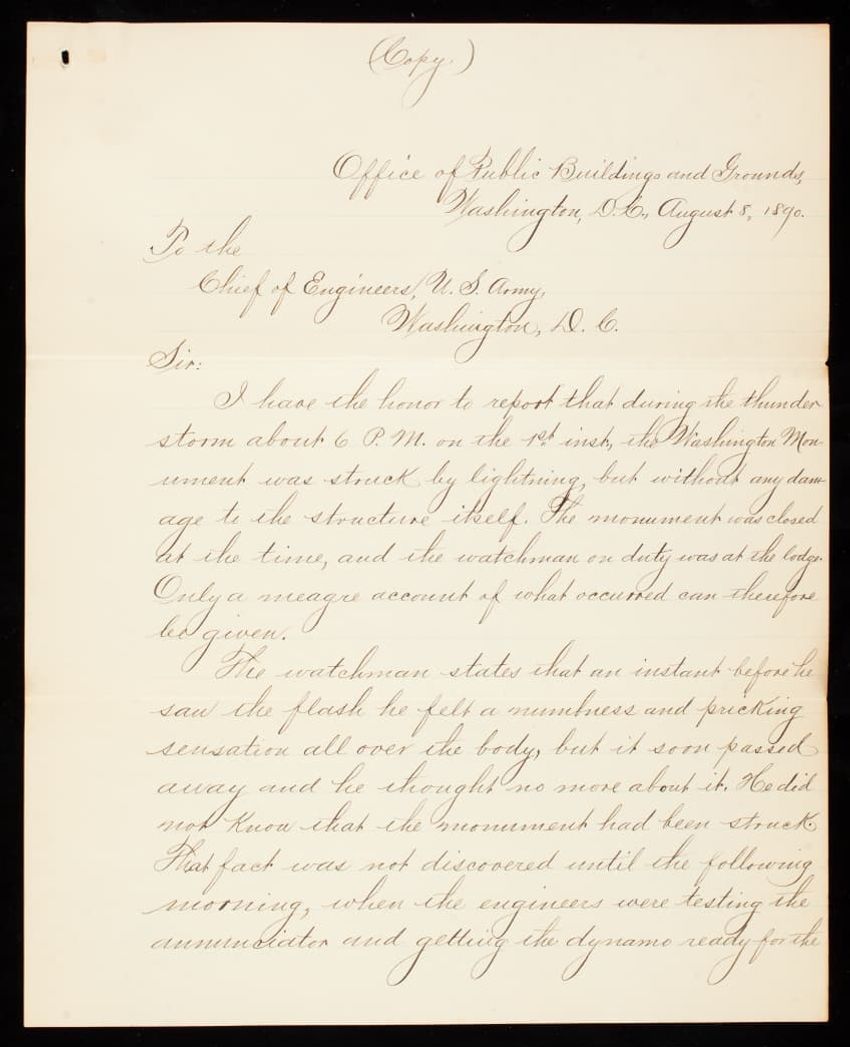 (Copy.)
Office of Public Buildings and Grounds,
Washington, D.C., August 8, 1890.
To the
Chief of Engineers, U. S. Army,
Washington, D. C.
Sir:
I have the honor to report that during the thunder
storm about 6 P. M. on the 1st inst., the Washington Mon-
ument was struck by lightning, but without any dam-
age to the structure itself. The monument was closed
at the time, and the watchman on duty was at the lodge.
Only a meagre account of what occurred can therefore
be given.
The watchman states that an instant before he
saw the flash he felt a numbness and pricking
sensation all over the body, but it soon passed
away and he thought no more about it. He did
not know that the monument had been struck.
That fact was not discovered until the following
morning, when the engineers were testing the
annunciator and getting the dynamo ready for the